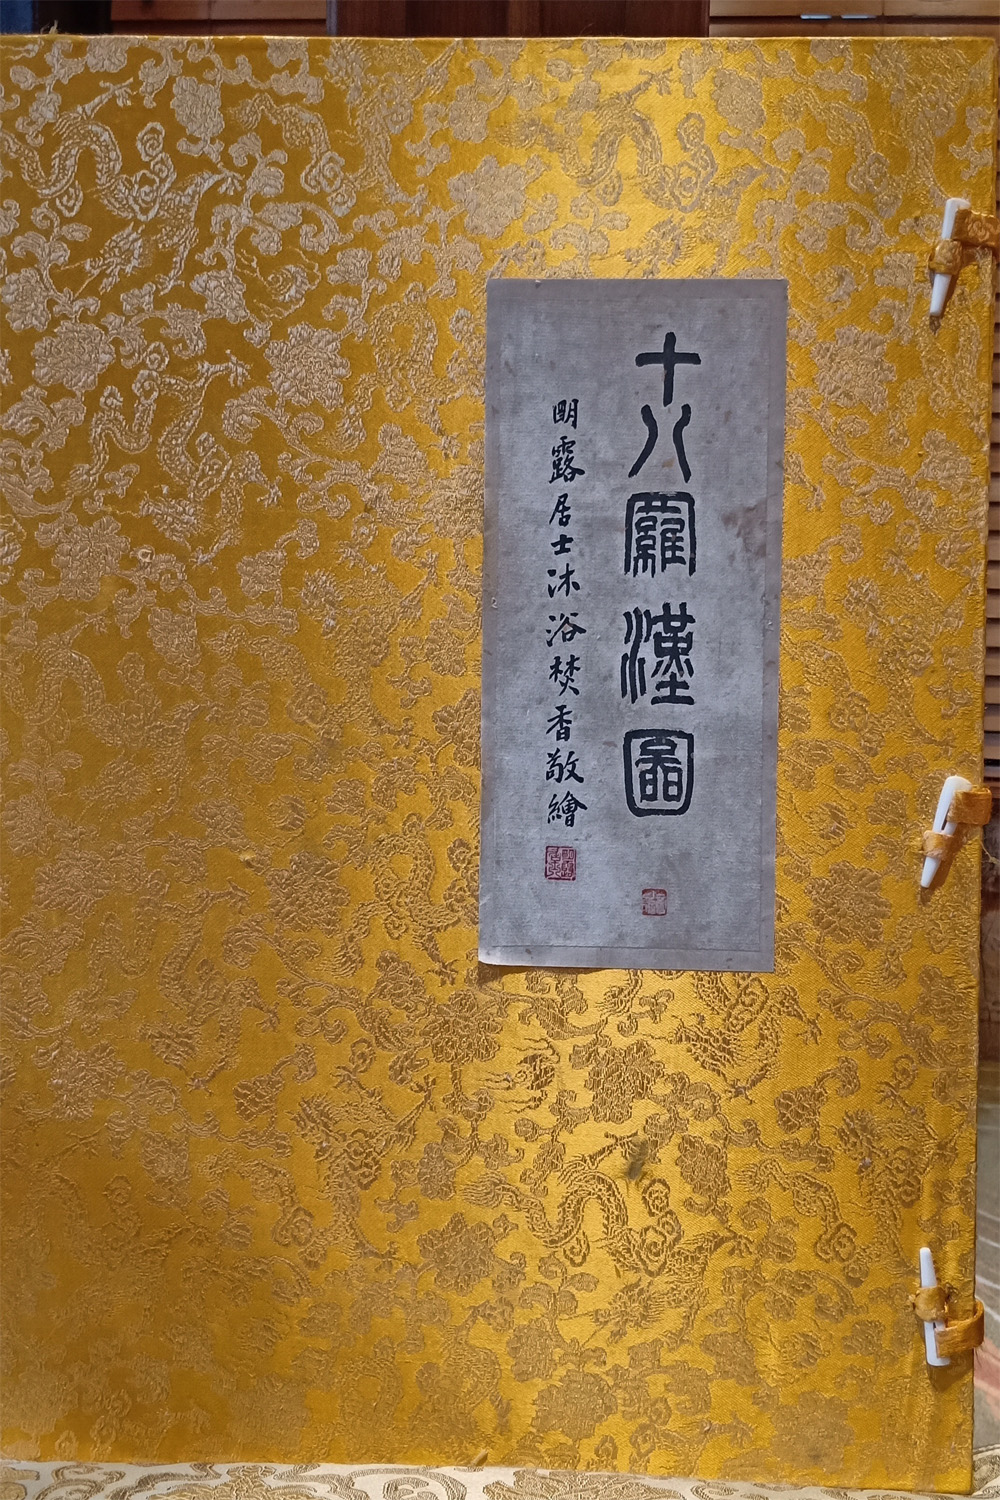 十八羅漢圖
明露居士沐浴焚香敬繪